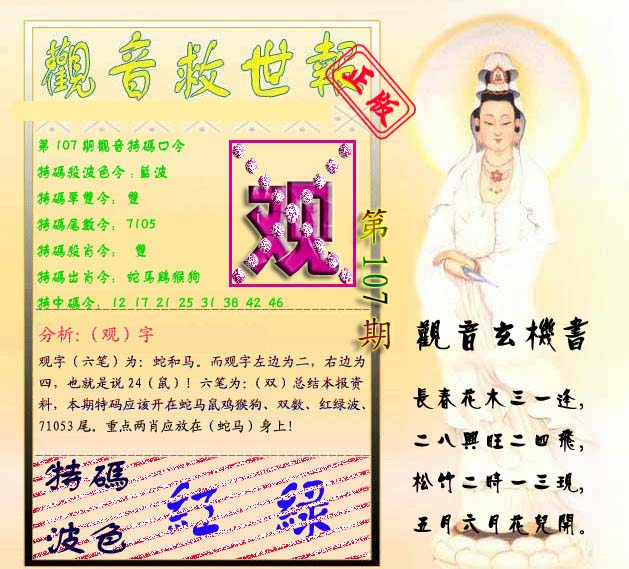 觀音救世報
正版
第107期觀音特碼口令
特碼殺波色令：藍波
特碼單雙令： 雙
特碼尾數令： 7105
特碼殺肖令： 雙
特碼出肖令： 蛇馬鷄猴狗
特中碼令： 12 17 21 25 31 38 42 46
观
第107期
分析:（观）字
观字（六笔）为：蛇和马。而观字左边为二，右边为
四，也就是说24（鼠）！六笔为：（双）总结本报资
料，本期特码应该开在蛇马鼠鸡猴狗、双数、红绿波、
71053尾。重点两肖应放在（蛇马）身上！
特碼
波色
紅 綠
觀音玄機書
長春花木三一逢,
二八興旺二四飛,
松竹二時一三現,
五月六月花兒開。